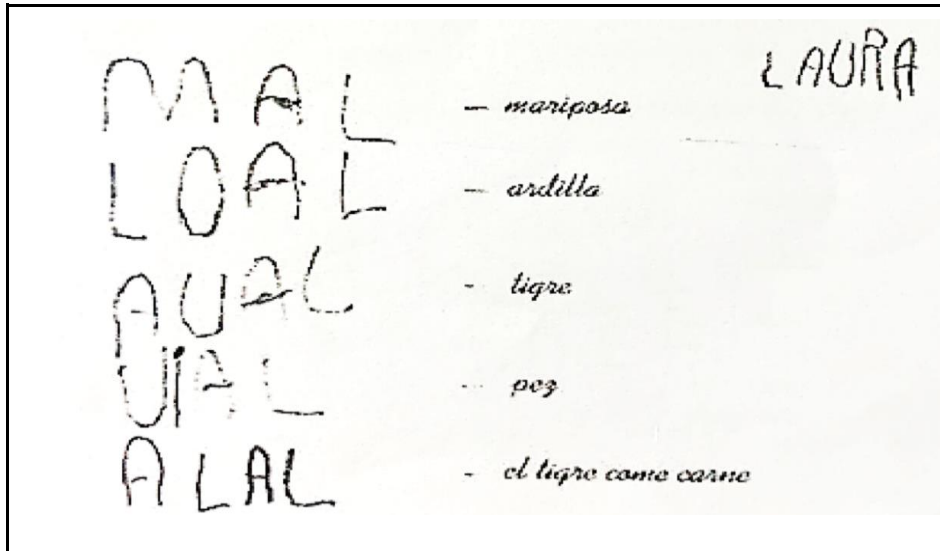 LAURA
MAL - mariposa
LOAL - ardilla
AUAL - tigre
UiAL - pez
ALAL - el tigre come carne